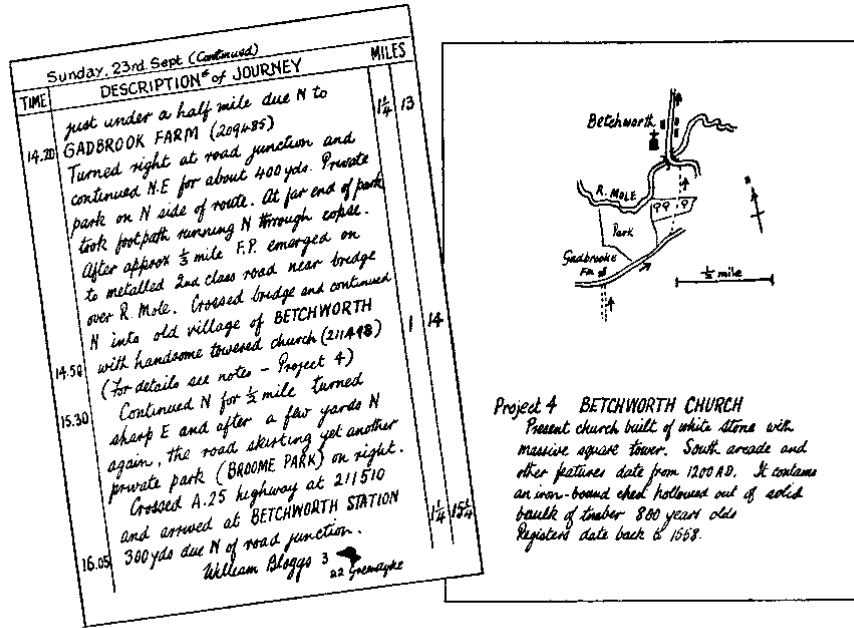 Sunday, 23rd. Sept (Continued)
TIME
DESCRIPTION of JOURNEY
MILES
just under a half mile due N to
1¼ 13
14.20 GADBROOK FARM (209485)
Turned right at road junction and
continued N.E for about 400 yds. Private
park on N side of route. At far end of park
took footpath running N through copse.
After approx ⅓ mile F.P. emerged on
to metalled 2nd class road near bridge
over R. Mole. Crossed bridge and continued
N into old village of BETCHWORTH
1 14
14.50 with handsome towered church (211498)
(For details see notes - Project 4)
15.30 Continued N for ½ mile turned
sharp E and after a few yards N
again, the road skirting yet another
private park (BROOME PARK) on right.
Crossed A.25 highway at 211510
and arrived at BETCHWORTH STATION
1¼ 15¼
16.05 300 yds due N of road junction.
William Bloggs 3
22
Betchworth
R. MOLE
Park
Gadbrooke
Fm
½ mile
Project 4 BETCHWORTH CHURCH
Present church built of white stone with
massive square tower. South arcade and
other features date from 1200 AD. It contains
an iron-bound chest hollowed out of solid
baulk of timber 800 years old.
Registers date back to 1558.